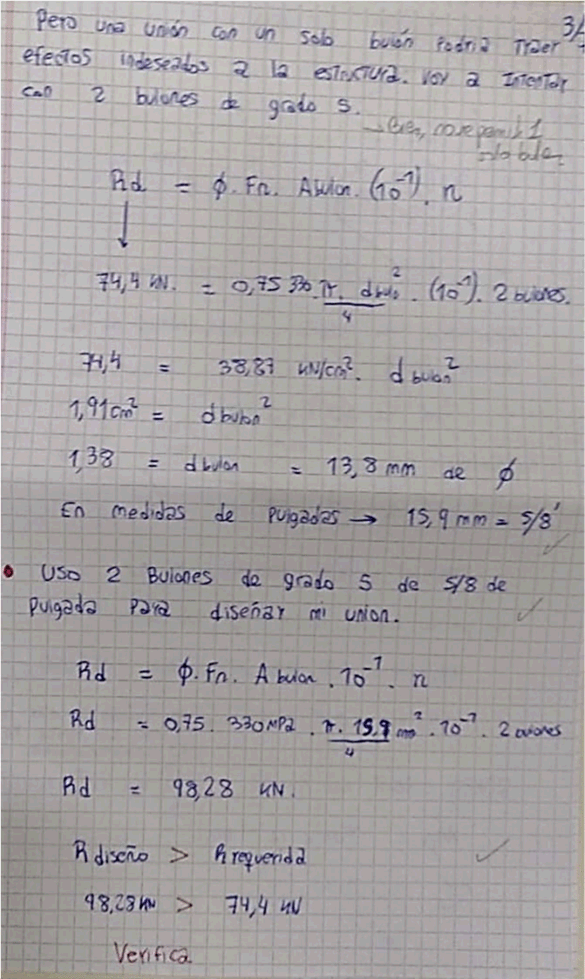 3/
Pero una unión con un solo bulón podria Traer
efectos indeseados a la estructura. Voy a Intentar
con 2 bulones de grado 5.
→ bien, no se permite 1
solo bulon
Rd = φ. Fn. Abulon. (10⁻¹). n
↓
74,4 kN. = 0,75 330 π. dbulo² / 4 . (10⁻¹). 2 bulones.
74,4 = 38,87 kN/cm². d bulon²
1,91cm² = dbulon²
1,38 = dbulon = 13,8 mm de φ
En medidas de pulgadas → 15,9 mm = 5/8'
• USO 2 Bulones de grado 5 de 5/8 de
pulgada para diseñar mi union.
Rd = φ. Fn. A bulon . 10⁻¹. n
Rd = 0,75. 330MPa . π. 15,9 cm² / 4 . 10⁻¹. 2 bulones
Rd = 98,28 kN.
R diseño > R requerida
98,28kN > 74,4 kN
Verifica